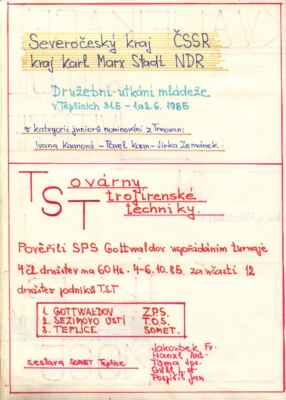 Severočeský kraj ČSSR
kraj Karl Marx Stadt NDR
Družební utkání mládeže
v Teplicích 31.5 - 1. a 2.6. 1985
v kategorii juniorů nominováni z Trnovan:
Ivana - Pavel - Jirka Zemánek
Továrny
Strojírenské
Techniky.
Pověřili SPS Gottwaldov uspořádáním turnaje
4 čl družstev na 60 HS. 4-6.10.85, za účasti 12
družstev podniků T.S.T
1. GOTTWALDOV Z.P.S.
2. SEZIMOVO ÚSTÍ T.O.S.
3. TEPLICE SOMET.
sestava SOMET Teplice
Jakoubek Fr.
Hanzl
Tůma
Pospíšil Jan